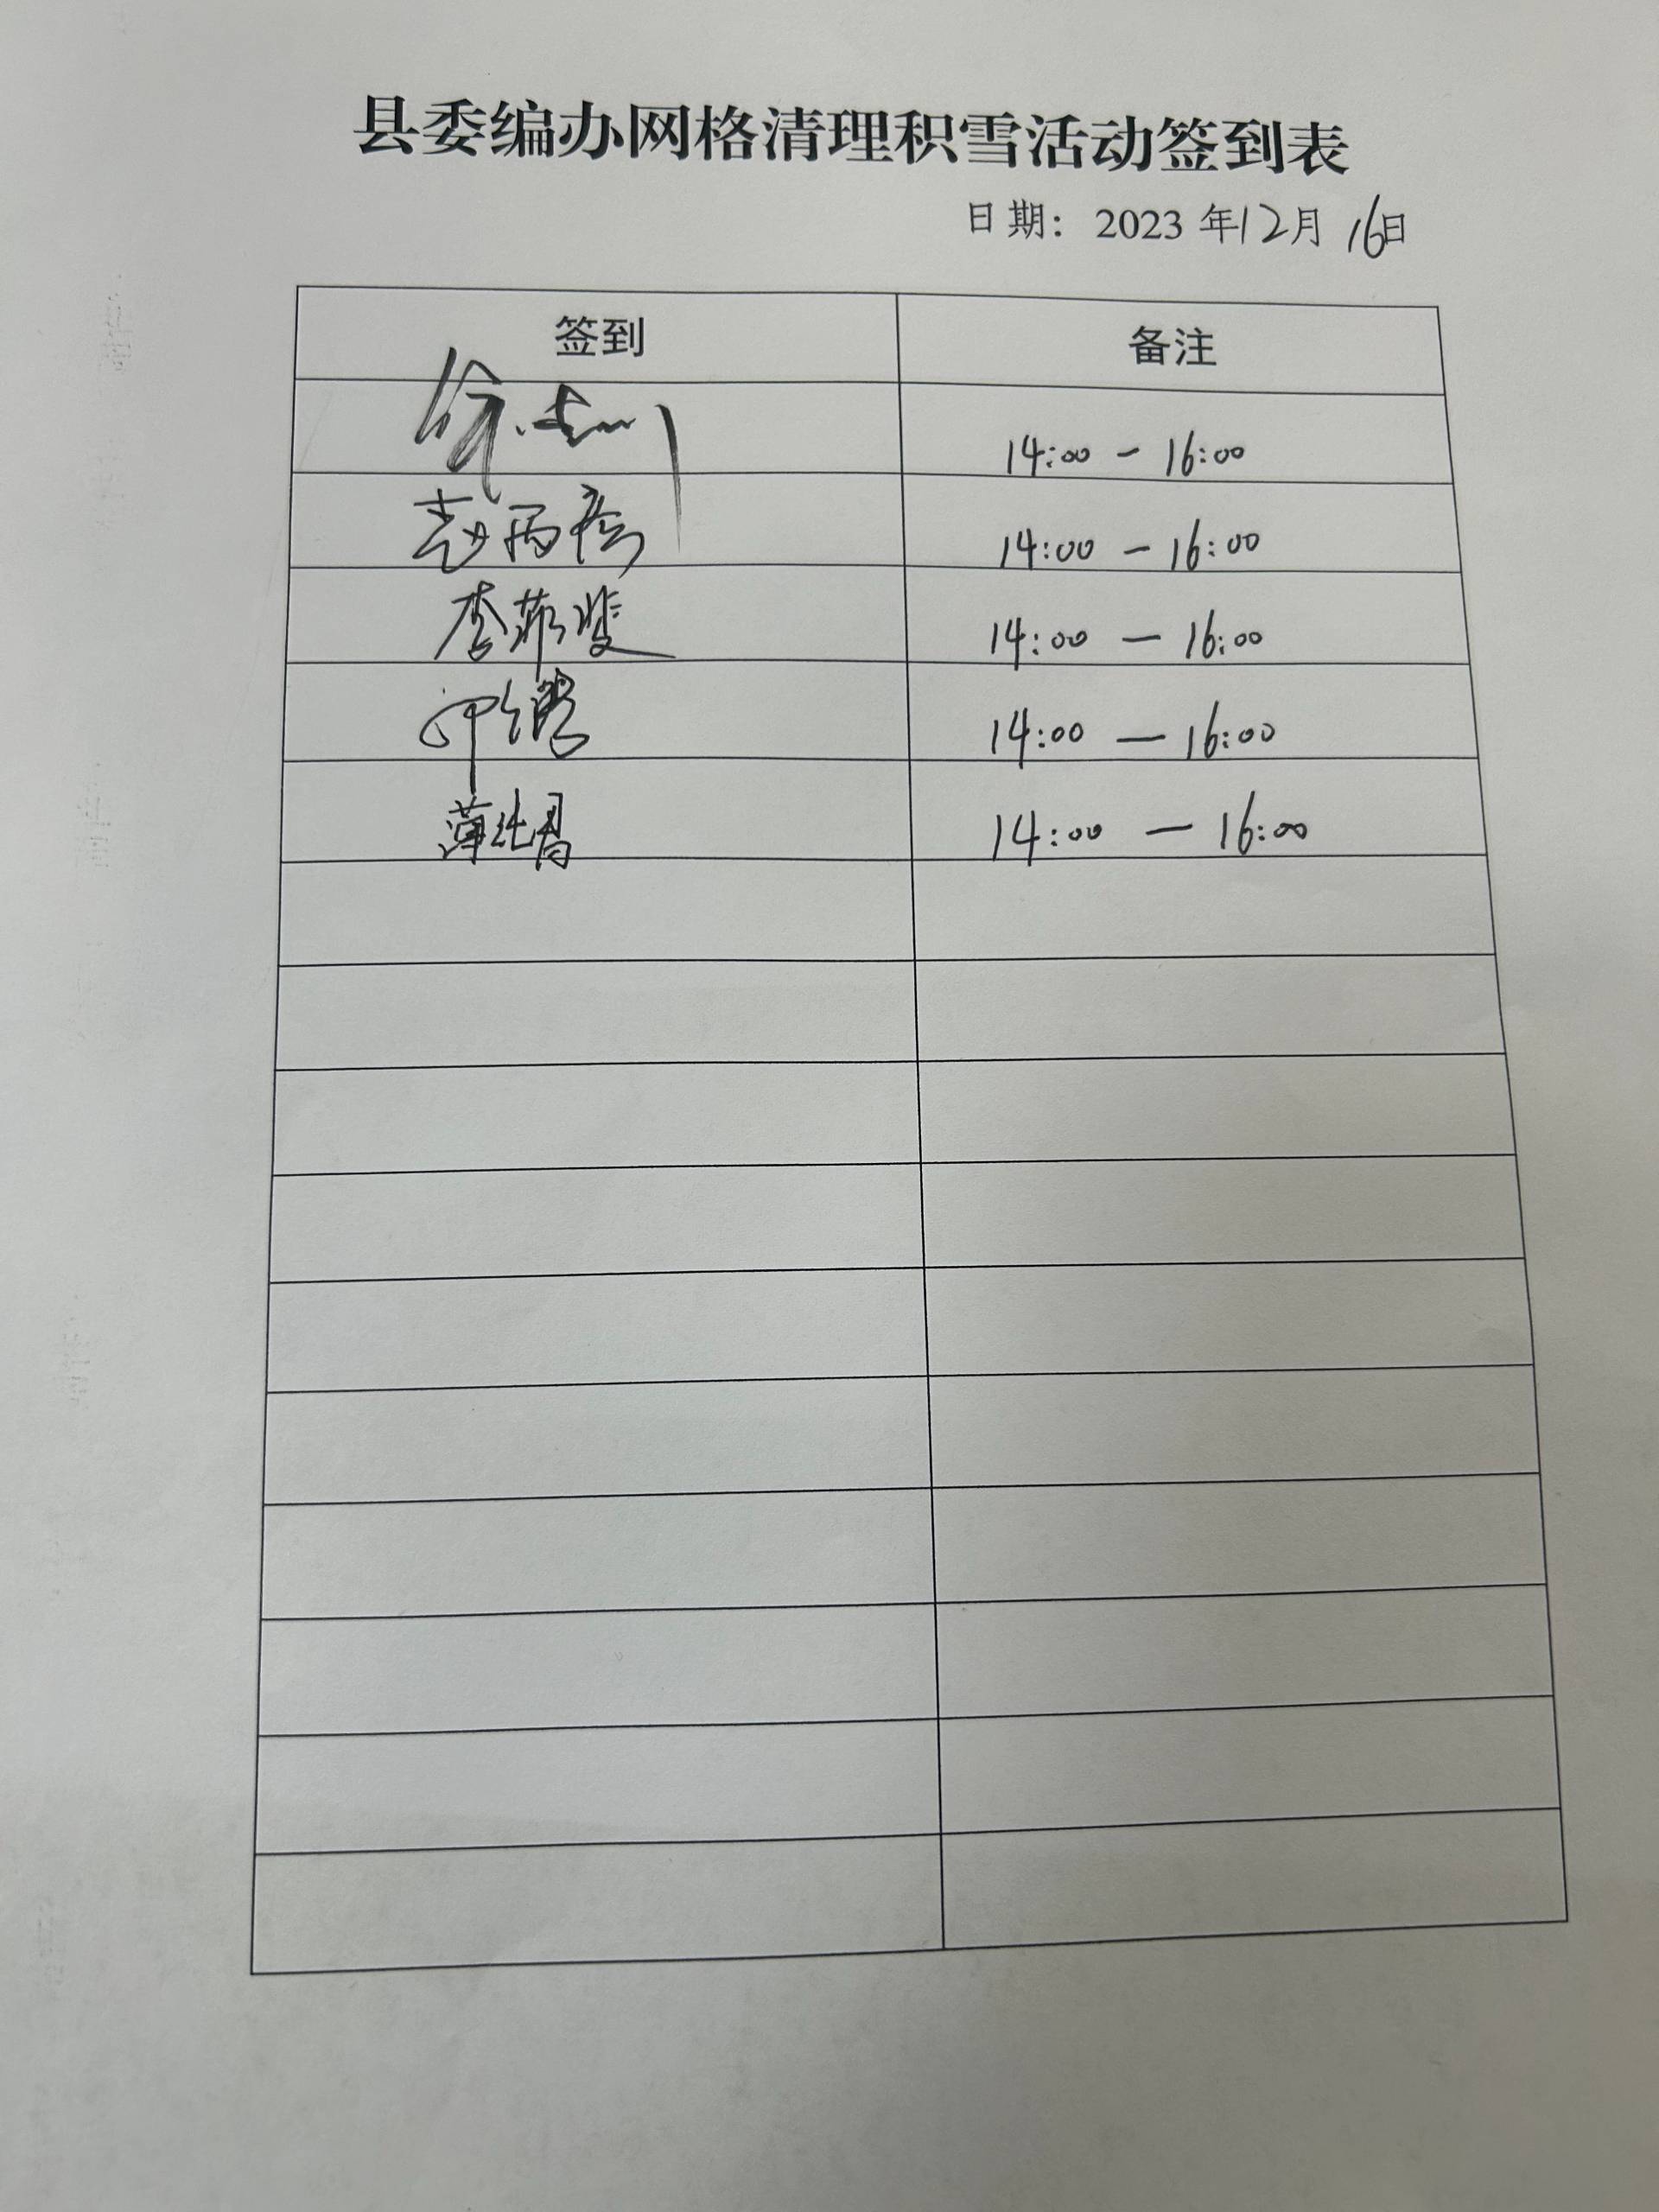 县委编办网格清理积雪活动签到表
日期：2023年12月16日
签到 备注
徐志刚 14:00 - 16:00
赵丙 14:00 — 16:00
李菲斐 14:00 — 16:00
14:00 — 16:00
薄纯 14:00 — 16:00